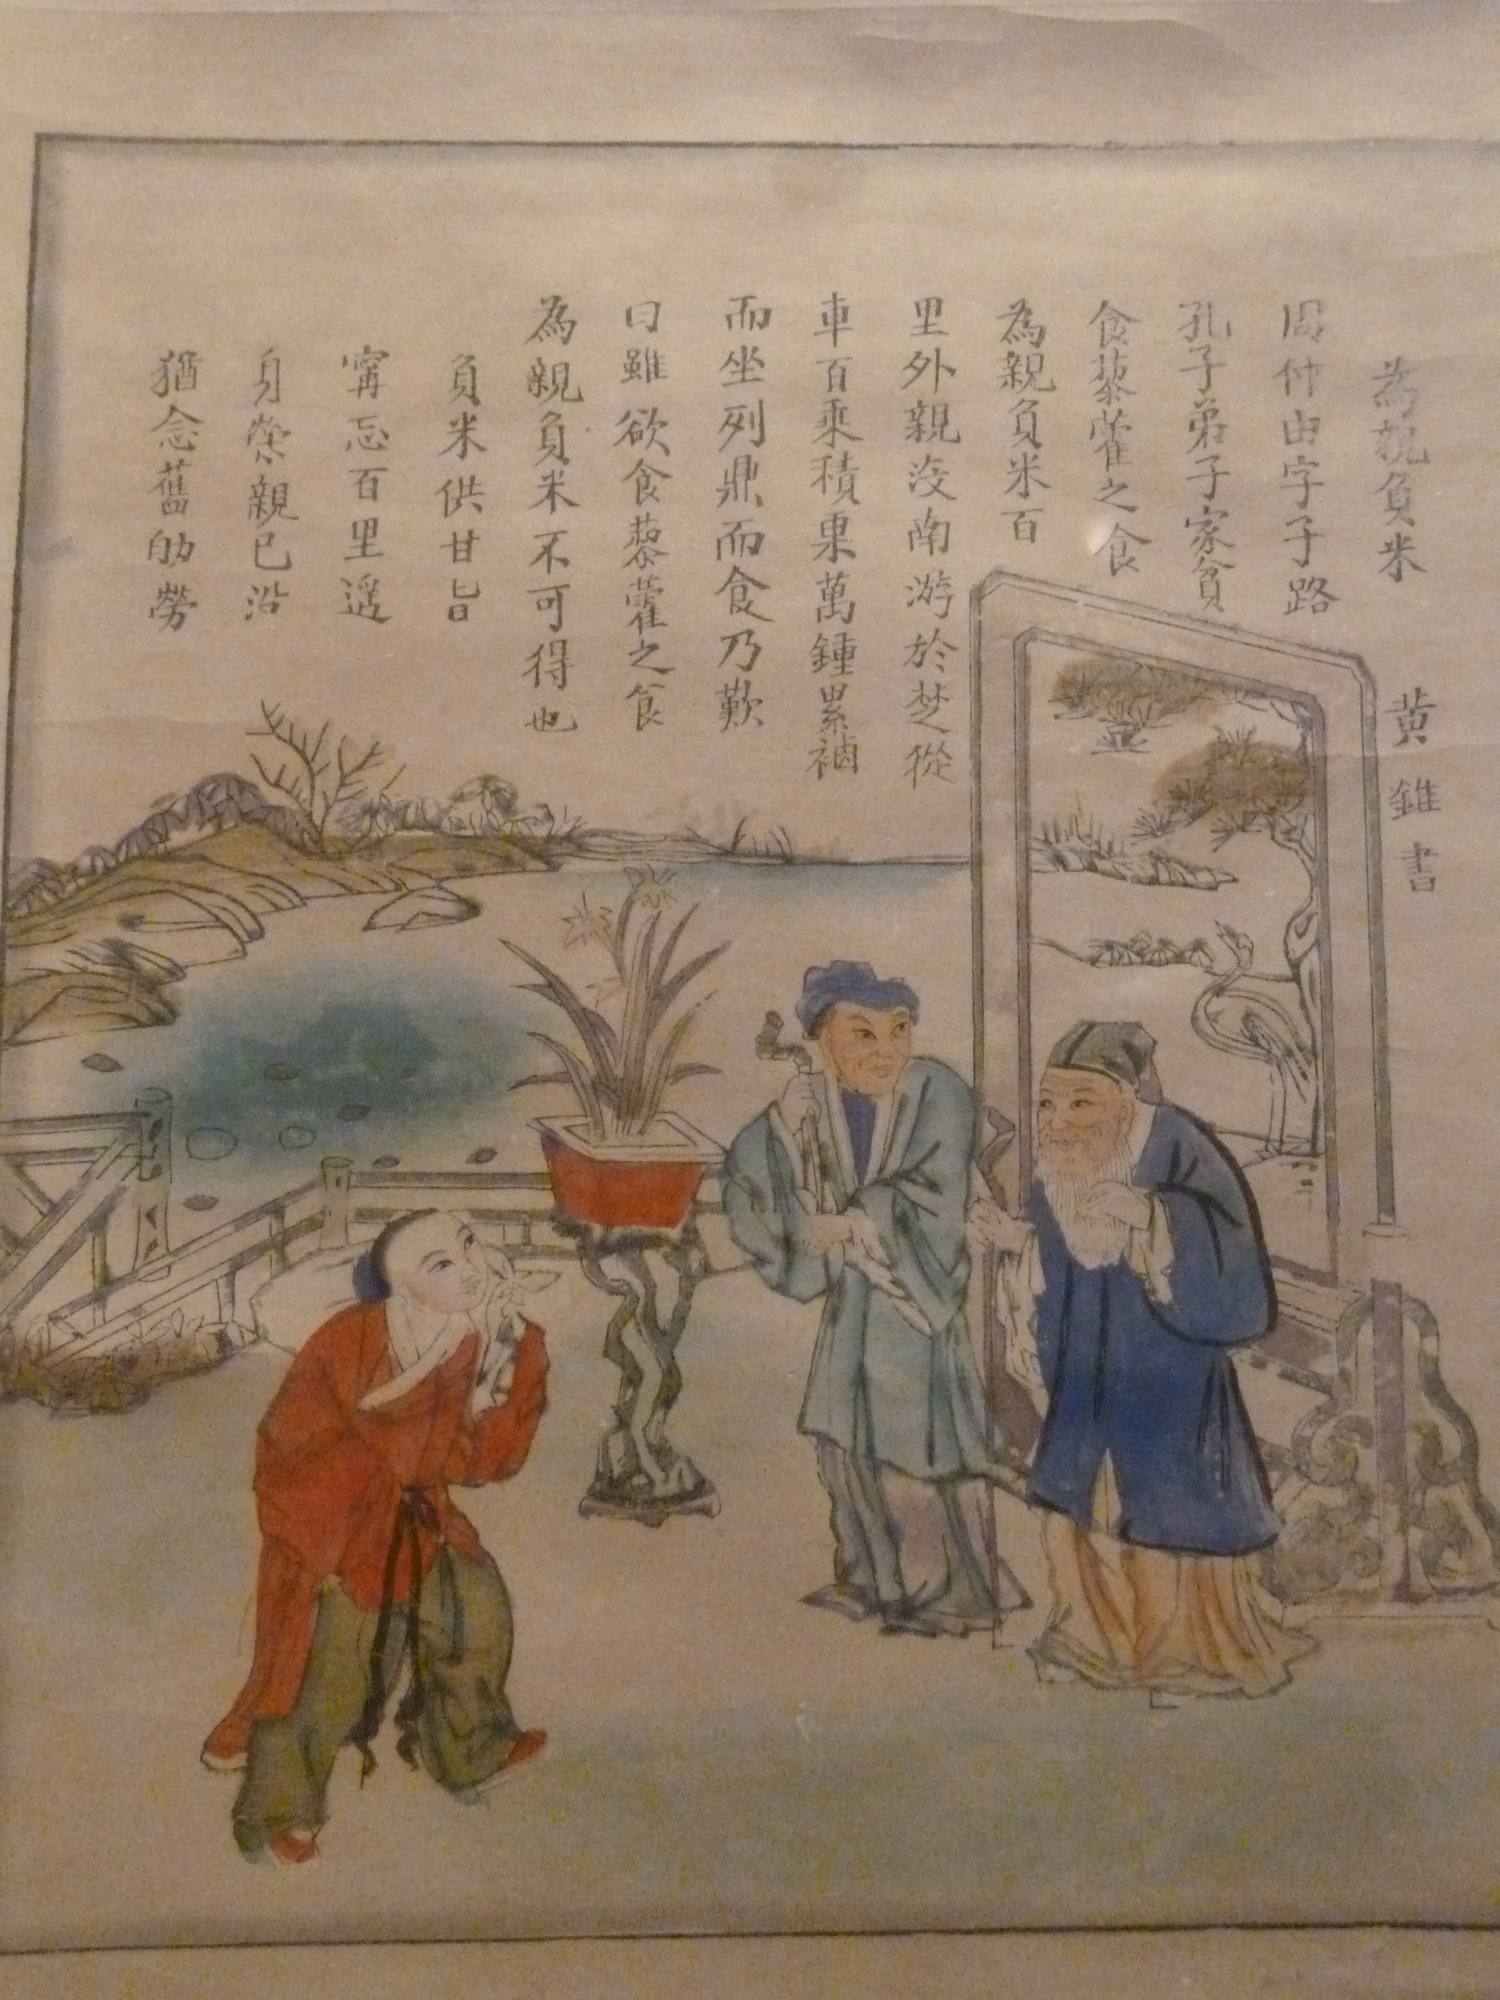 為親負米
黃錐書
周仲由字子路
孔子弟子家貧
食藜藿之食
為親負米百
里外親沒南游於楚從
車百乘積粟萬鍾累裀
而坐列鼎而食乃歎
曰雖欲食藜藿之食
為親負米不可得也
負米供甘旨
寗忘百里遥
身榮親已沿
猶念舊劬勞